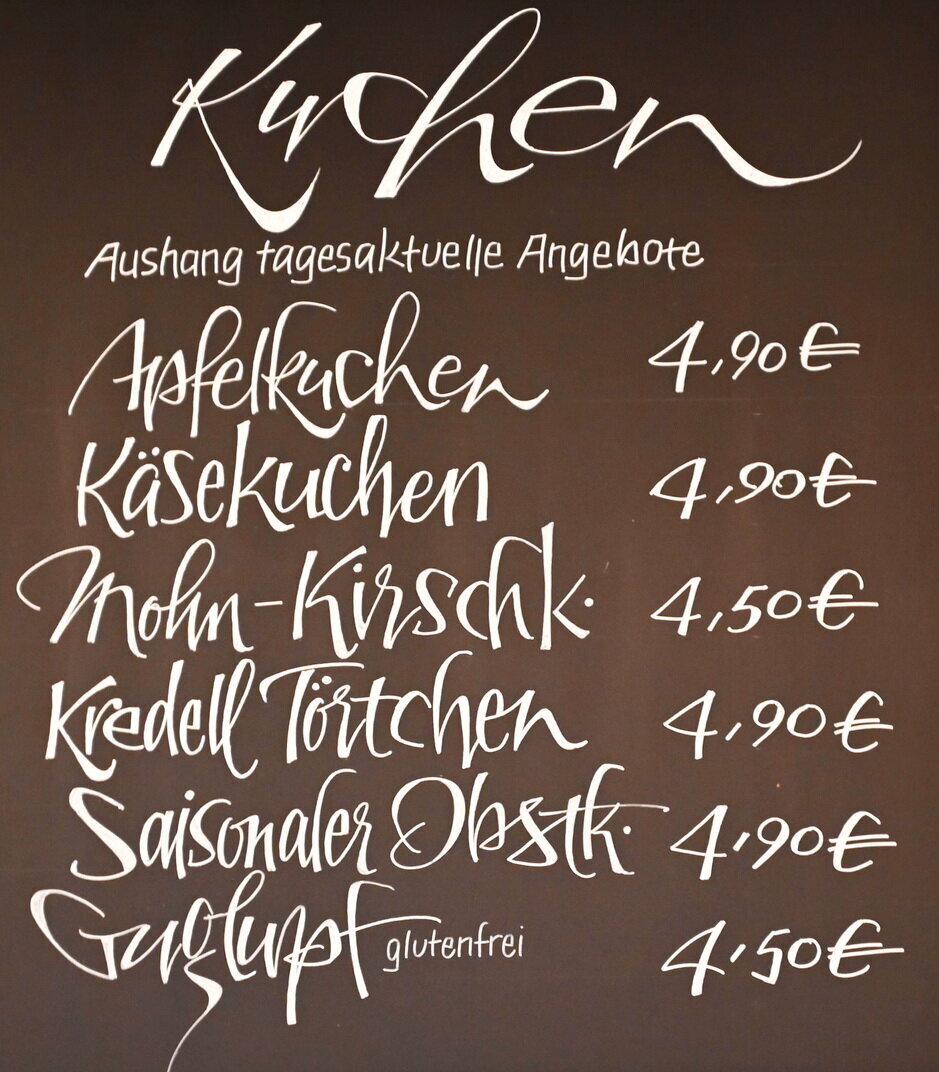 Kuchen
Aushang tagesaktuelle Angebote
Apfelkuchen 4,90 €
Käsekuchen 4,90 €
Mohn-Kirschk. 4,50 €
Kredell Törtchen 4,90 €
Saisonaler Obstk. 4,90 €
Guglupf glutenfrei 4,50 €